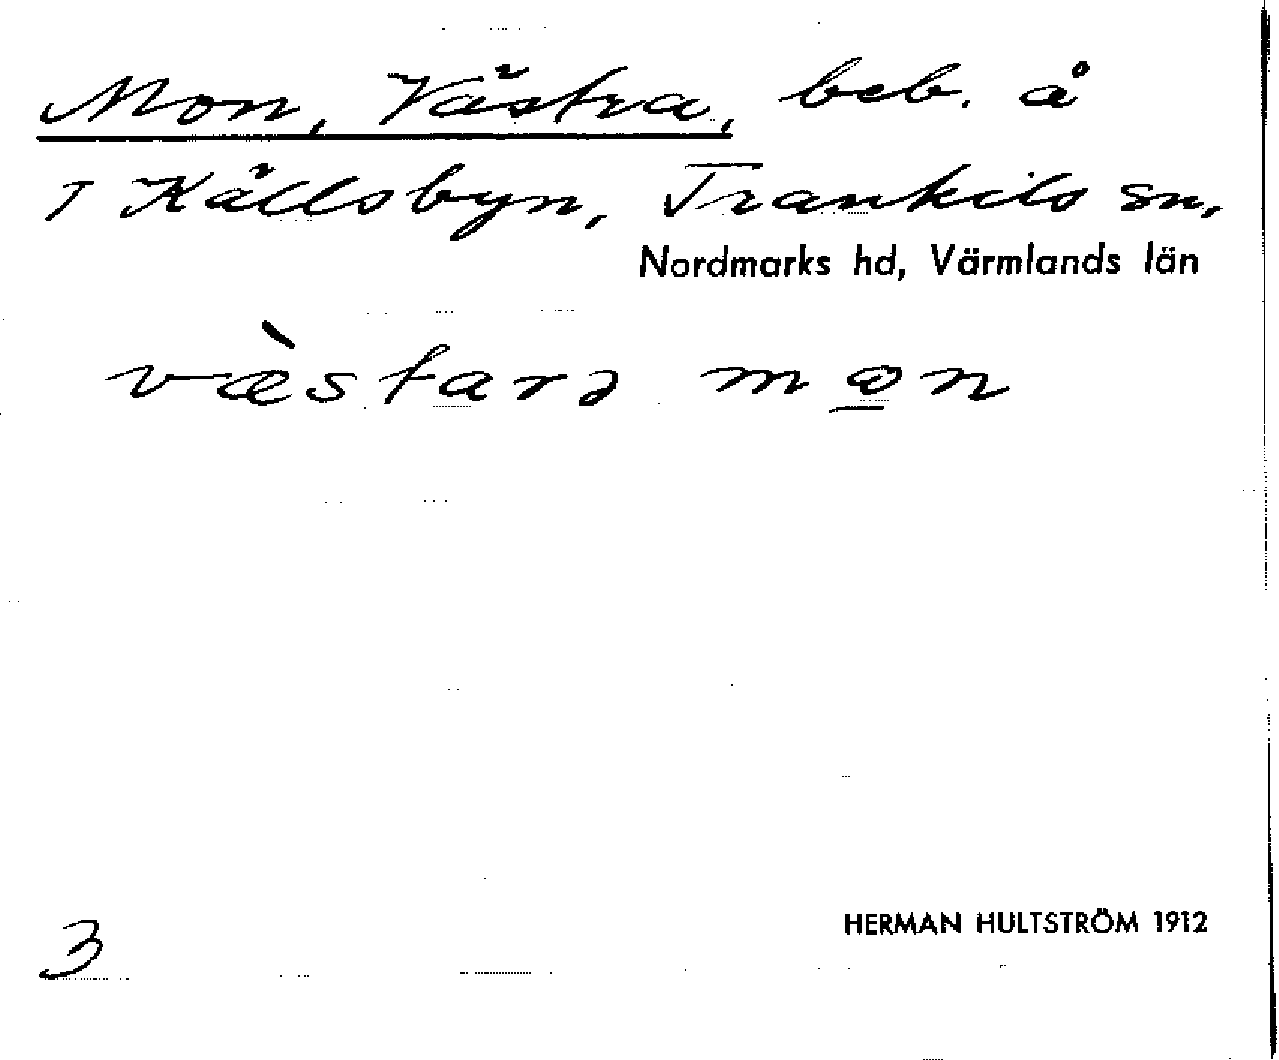 Mon, Västra, beb. å
T Källsbyn, Trankils sn,
Nordmarks hd, Värmlands län
væ̀starə mo̲n
3
HERMAN HULTSTRÖM 1912